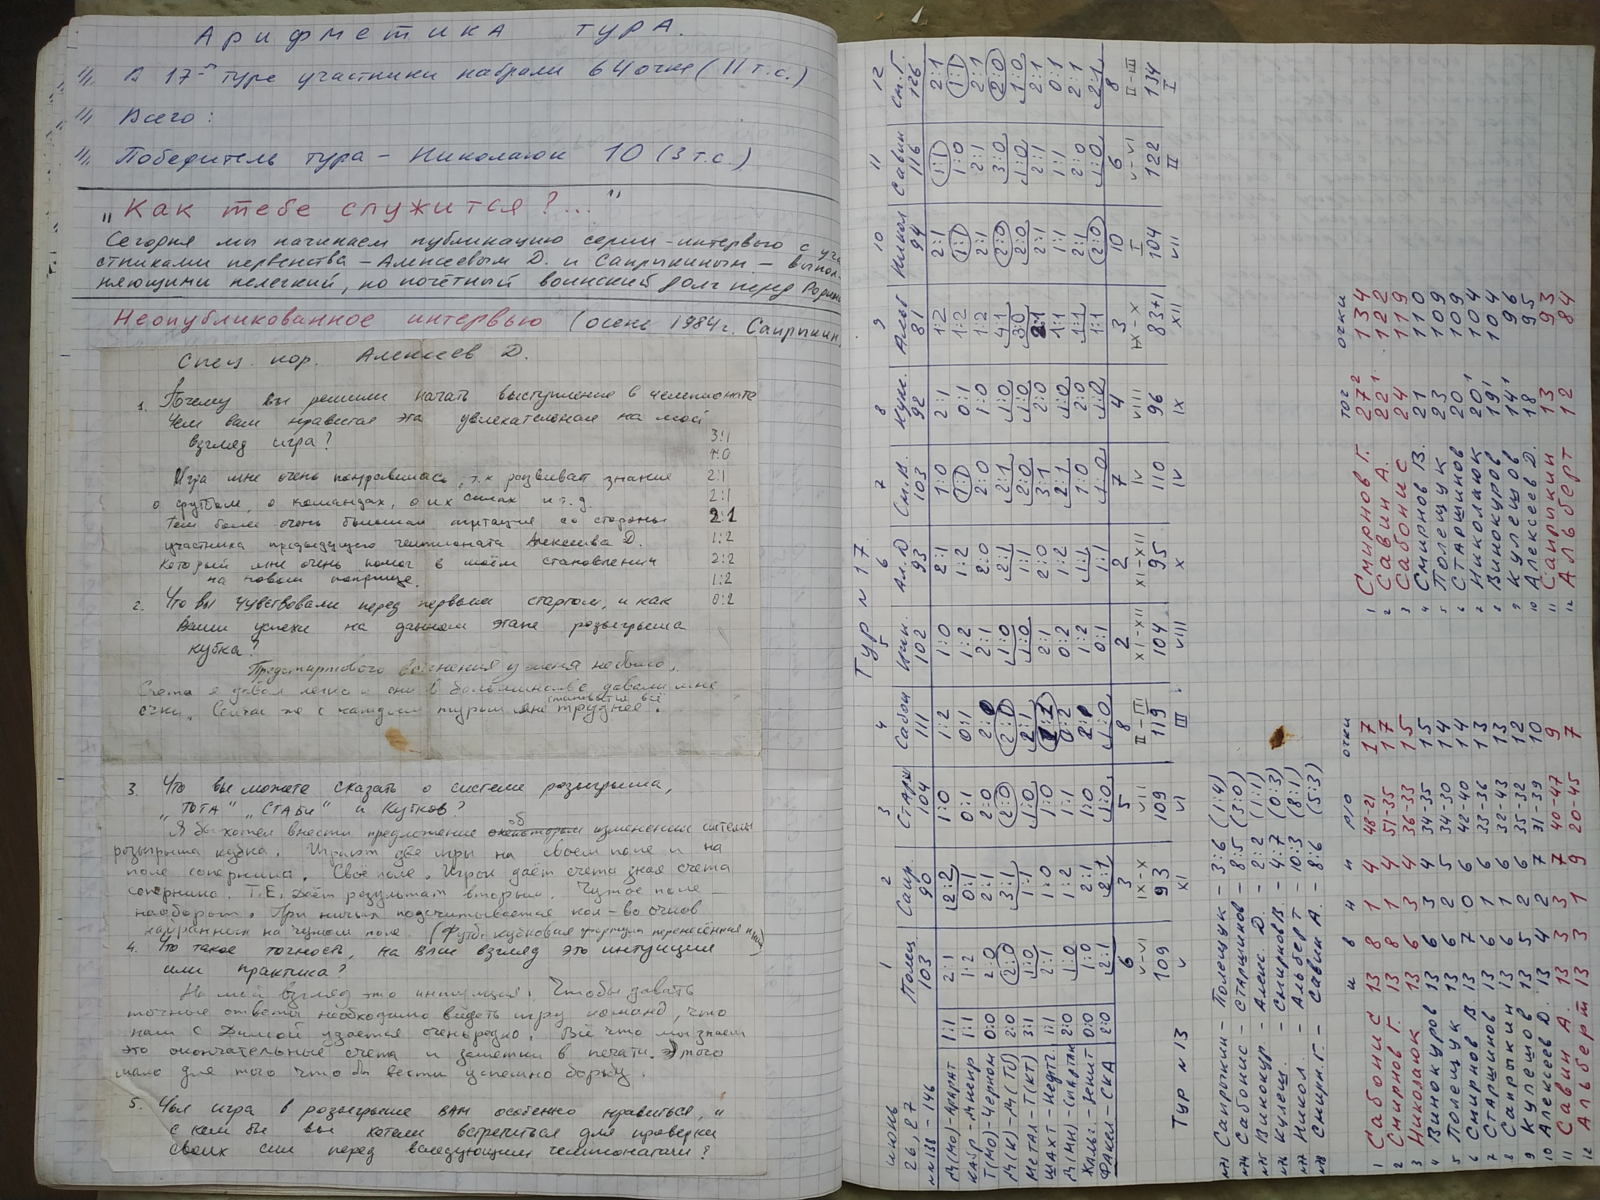 Арифметика тура.
В 17-м туре участники набрали 64 очка (11 т.с.)
Всего:
Победитель тура – Николаюк 10 (3 т.с.)
„Как тебе служится?..."
Сегодня мы начинаем публикацию серии интервью с уча-
стниками первенства – Алексеевым Д. и Сапрыкиным – выпол-
няющими нелегкий, но почётный воинский долг перед Родин
Неопубликованное интервью (осень 1984 г. Сапрыкин
Спец. кор. Алексеев Д.
1. Почему вы решили начать выступление в чемпионате
Чем вам нравится эта увлекательная на мой
взгляд игра?
3:1
1:0
Игра мне очень понравилась, т.к развивает знания 2:1
о футболе, о командах, о их силах и т.д. 2:1
Тем более очень большая агитация со стороны 2:1
участника предыдущего чемпионата Алексеева Д. 1:2
который мне очень помог в моём становлении 2:2
на новом поприще. 1:2
2. Что вы чувствовали перед первым стартом, и как 0:2
Ваши успехи на данном этапе розыгрыша
кубка?
Предстартового волнения у меня не было.
Счета я давал легко и они в большинстве давали мне
очки. Сейчас же с каждым туром мне становится всё труднее.
3. Что вы можете сказать о системе розыгрыша,
„ТОТА", „СТАБИ" и Кубков?
Я бы хотел внести предложение об изменении системы
розыгрыша кубка. Играют две игры на своем поле и на
поле соперника. Своё поле. Игрок даёт счета зная счета
соперника. Т.Е. даёт результат вторым. Чужое поле –
наоборот. При ничьих подсчитывается кол-во очков
набранных на чужом поле. (Футб. кубковая формула перенесённая к нам)
4. Что такое точность, на Ваш взгляд это интуиция
или практика?
На мой взгляд это интуиция. Чтобы давать
точные ответы необходимо видеть игру команд, что
нам с Димой удается очень редко. Всё что мы знаем
это окончательные счета и заметки в печати. Этого
мало для того что бы вести успешно борьбу.
5. Чья игра в розыгрыше вам особенно нравиться, и
с кем бы вы хотели встретиться для проверки
своих сил перед вследующим чемпионатам?
Тур №17
июнь 1 2 3 4 5 6 7 8 9 10 11 12
26, 27 Полещ Сапр. Старш Сабон Вин. Ал.Д См.В. Кул. Альб Никол Савин См.Г.
№№138-146 103 90 104 111 102 93 103 92 81 94 116 126
Д(Мо)-Арарат 1:1 2:1 2:2 1:0 1:2 1:0 2:1 1:0 2:1 1:2 2:1 1:1 2:1
Кайр-Днепр 1:1 1:2 0:1 0:1 0:1 1:2 1:2 1:1 0:1 1:2 1:1 1:0 1:1
Т(Мо)-Черном 0:0 2:0 2:1 2:0 2:0 2:1 2:0 2:0 1:0 1:2 2:1 2:1 2:1
Д(К)-Д(Тб) 2:0 2:0 3:1 2:0 2:1 1:0 2:1 2:1 1:0 4:1 2:0 3:0 2:0
Метал-Т(КТ) 3:1 1:0 1:1 1:0 2:1 1:0 1:1 2:0 1:0 3:0 2:0 1:0 1:0
Шахт-Нефтч. 1:1 2:1 1:0 1:0 2:0 3:1 2:0 2:1 2:1 2:1 2:1
Д(Мн)-Спартак 2:0 1:0 1:2 1:1 0:2 0:2 1:2 2:1 1:0 1:1 1:1 1:1 0:1
Жальг-Зенит 0:0 1:0 2:1 1:0 1:2 1:1 1:0 2:0 1:1 2:1 2:0 2:1
Факел-СКА 2:0 2:1 2:1 1:0 1:0 0:1 1:1 1:0 1:0 1:1 2:0 1:0 2:1
6 3 5 8 2 2 7 4 3 10 6 8
V-VI IX-X VII II-III XI-XII XI-XII IV VIII IX-X I V-VI II-III
109 93 109 119 104 95 110 96 83+1 104 122 134
V XI VI III VIII X IV IX XII VII II I
Тур №13
№73 Сапрыкин – Полещук – 3:6 (1:4)
№74 Сабонис – Старшинов – 8:5 (3:0)
№75 Винокур. – Алекс. Д. – 2:2 (1:1)
№76 Кулеш. – Смирнов В. – 4:7 (0:3)
№77 Никол. – Альберт – 10:3 (8:1)
№78 Смирн. Г. – Савин А. – 8:6 (5:3)
и в н п р/о очки
1 Сабонис 13 8 1 4 48-21 17
2 Смирнов Г. 13 8 1 4 51-35 17
3 Николаюк 13 6 3 4 36-33 15
4 Винокуров 13 6 3 4 34-35 15
5 Полещук 13 6 2 5 34-30 14
6 Смирнов В. 13 7 0 6 42-40 14
7 Старшинов 13 6 1 6 33-36 13
8 Сапрыкин 13 6 1 6 32-43 13
9 Кулешов 13 5 2 6 35-32 12
10 Алексеев Д. 13 4 2 7 31-39 10
11 Савин А. 13 3 3 7 40-47 9
12 Альберт 13 3 1 9 20-45 7
тог очки
1 Смирнов Г. 27² 134
2 Савин А. 22¹ 122
3 Сабонис 24 119
4 Смирнов В. 21 110
5 Полещук 23 109
6 Старшинов 20 109
7 Николаюк 20¹ 104
8 Винокуров 19¹ 104
9 Кулешов 14¹ 96
10 Алексеев Д. 18 95
11 Сапрыкин 13 93
12 Альберт 12 84